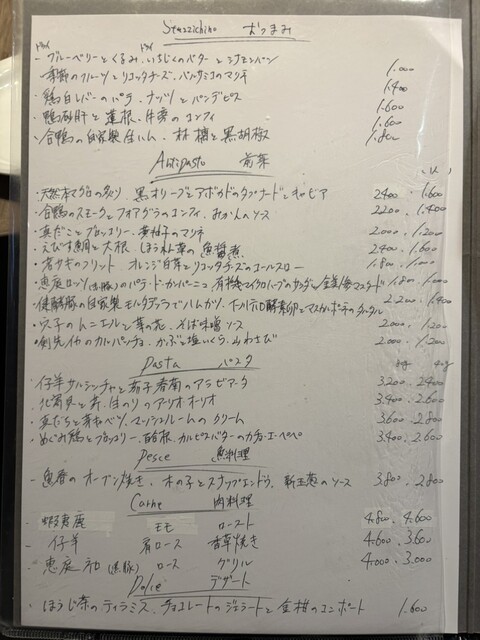 Stuzzichino おつまみ
ドライ ドライ
- ブルーベリーとくるみ、いちじくのバターとシナモンパン 1.000
・季節のフルーツとリコッタチーズ、バルサミコのマリネ 1.400
・鶏白レバーのパテ、ナッツとパンデピス 1.600
・鴨砂肝と蓮根、牛蒡のコンフィ 1.600
・合鴨の自家製生ハム、林檎と黒胡椒 1.800
Antipasto 前菜
・天然本マグロの炙り、黒オリーブとアボカドのタプナードとキャビア 2400 . 1.600
・合鴨のスモークとフォアグラのコンフィ、みかんのソース 2200 . 1.400
・真だことブロッコリー、黄柚子のマリネ 2.000 . 1.200
・えびす鯛と大根、ほうれん草の魚醤煮 2.400 . 1.600
・若サギのフリット、オレンジ白菜とリコッタチーズのコールスロー 1.800 . 1.000
・恵庭ロッソ(黒豚)のパテ・ド・カンパーニュ、有機マイクロハーブのサラダ 1.800 . 1.000
自家製モルタデッラ ハムカツ 2.200 . 1.400
・穴子のムニエルと菜の花、そば味噌ソース 2.000 . 1.200
・剣先イカのカルパッチョ、かぶと塩いくら、山わさび 2.000 . 1.200
Pasta パスタ
・仔羊サルシッチャと茄子 のアラビアータ 3.200 . 2.400
・北寄貝と芹、生のりのアーリオオーリオ 3.400 . 2.600
・真だちと芽キャベツ、マッシュルームのクリーム 3.600 . 2.800
・めぐみ鶏とブロッコリー、 カルピスバターのカチョ・エ・ペペ 3.400 . 2.600
Pesce 魚料理
- 魚 のオーブン焼き、木の子とスナップエンドウ、新玉葱のソース 3.800 . 2.800
Carne 肉料理
- 蝦夷鹿 モモ ロースト 4.800 . 4.600
- 仔羊 肩ロース 香草焼き 4.600 . 3.600
- 恵庭 (黒豚) ロース グリル 4.000 . 3.000
Dolce デザート
・ほうじ茶のティラミス、チョコレートのジェラートと金柑のコンポート 1.600